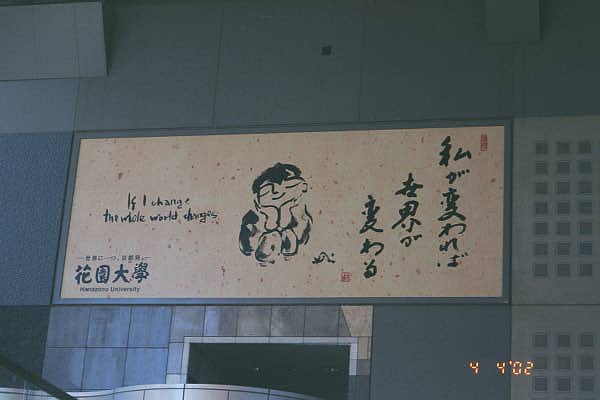 私が変われば
世界が
変わる
If I change
the whole world changes
世界に一つ、京都発。
花園大學
Hanazono University
4 4'02